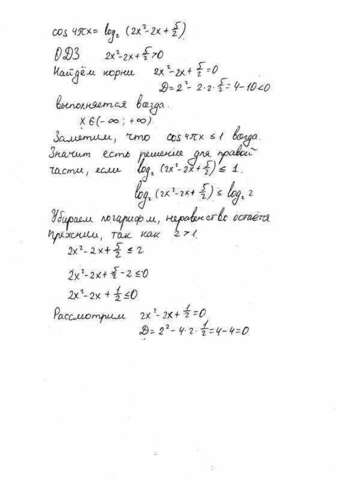 cos 4πx = log₂ (2x²-2x+5/2)
ОДЗ 2x²-2x+5/2>0
Найдём корни 2x²-2x+5/2=0
D=2²-2·2·5/2=4-10<0
выполняется всегда.
x∈(-∞;+∞).
Заметим, что cos 4πx ≤ 1 всегда.
Значит есть решение для правой
части, если log₂ (2x²-2x+5/2) ≤ 1.
log₂ (2x²-2x+5/2) ≤ log₂ 2
Убираем логарифм, неравенство остаётся
прежним, так как 2>1.
2x²-2x+5/2 ≤ 2
2x²-2x+5/2-2≤0
2x²-2x+1/2≤0
Рассмотрим 2x²-2x+1/2=0
D=2²-4·2·1/2=4-4=0